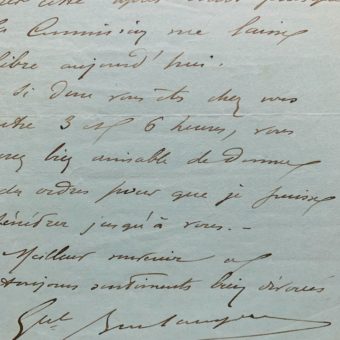 cette après
la Commission me laisse
libre aujourd'hui.
Si donc vous êtes chez vous
entre 3 et 6 heures, vous
serez bien aimable de donner
des ordres pour que je puisse
pénétrer jusqu'à vous. -
Meilleur souvenir et
toujours sentiments bien dévoués
Gve Boulanger